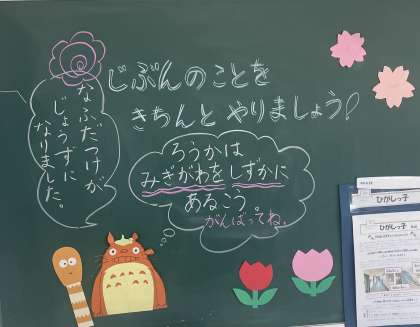 じぶんのことを
きちんと やりましょう!
なふだつけが
じょうずに
なりました。
ろうかは
みぎがわを しずかに
あるこう。
がんばってね。
ひがしっ子
ひがしっ子